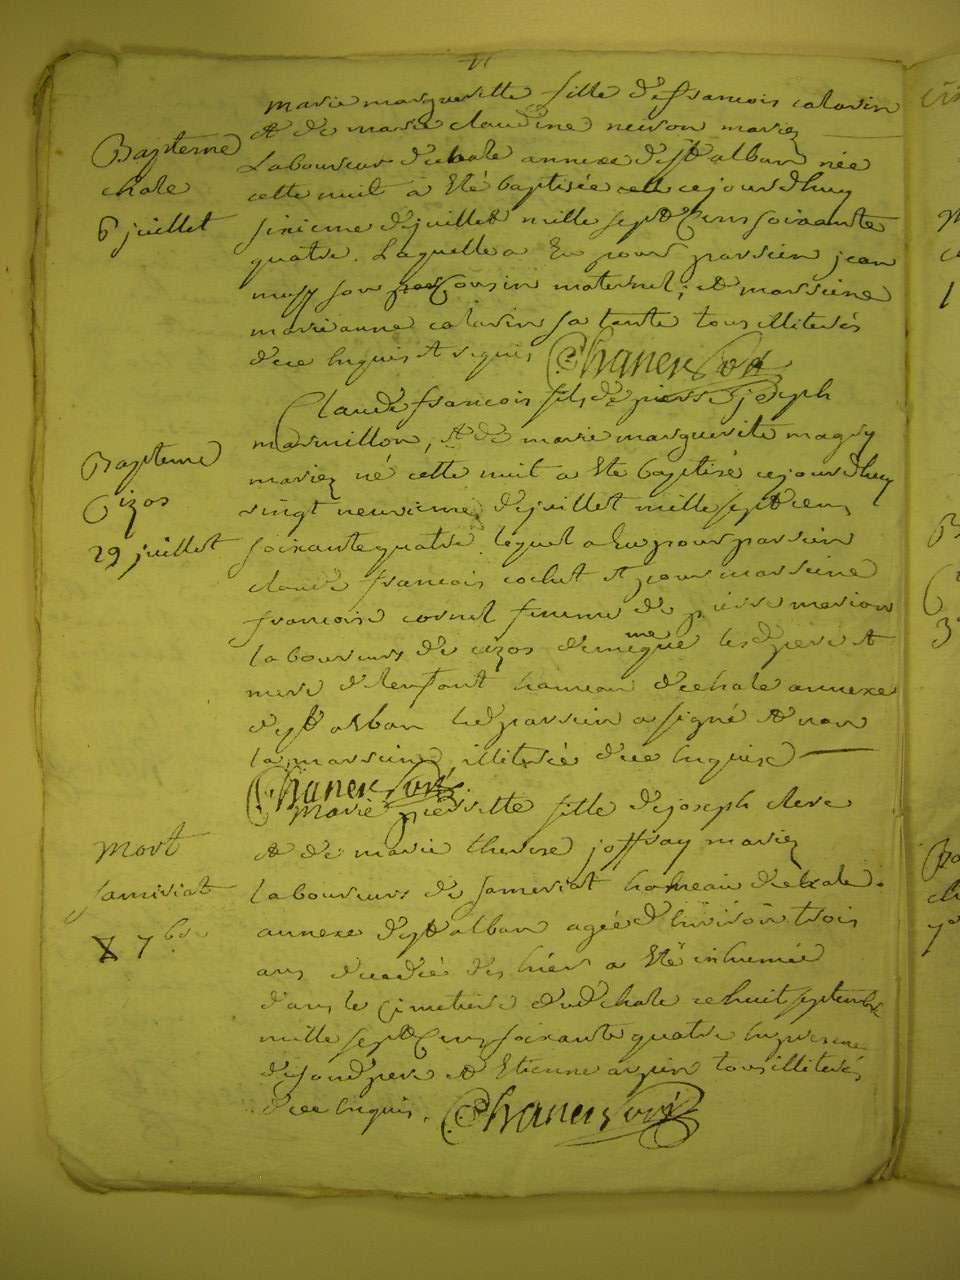 marie margueritte fille de francois calavin
et de marie claudine nevron mariez
Bapteme
chale
6 juillet
Laboureurs de chale annexe de st alban née
cette nuit à Eté baptisée cejourdhuy
sixieme de juillet mille sept Cens soixante
quatre. Laquelle a Eu pour parrein jean
son Cousin maternel; et marreine
marianne calavin sa tante tous illiterés
de ce Enquis et requis Chanex Curé
Claude francois fils de pierre joseph
marmillon, et de marie marguerite magny
Bapteme
Cizos
29 juillet
mariez né cette nuit a Ete baptisé cejourdhuy
vingt neuvieme de juillet mille sept cens
soixante quatre lequel a Eu pour parrein
claude francois cochet et pour marreine
francoise cornel femme de pierre merion
laboureurs de cizos de meme que les pere et
mere de lenfant hameau de chale annexe
de st alban led parrein a signé et non
la marreine illiterée de ce Enquise
Chanex Curé
marie pierrette fille de joseph clerc
Mort
Samiriat
8 7bre
et de marie therese joffray mariez
laboureurs de Sameriat hameau de chale
annexe de st alban agée d'Environ trois
ans decedée des hier a Eté inhumée
dans le Cimetiere dud chale ce huit septembre
mille sept Cens soixante quatre En presence
de son d pere et Etienne arpin tous illiterés
de ce Enquis. Chanex Curé